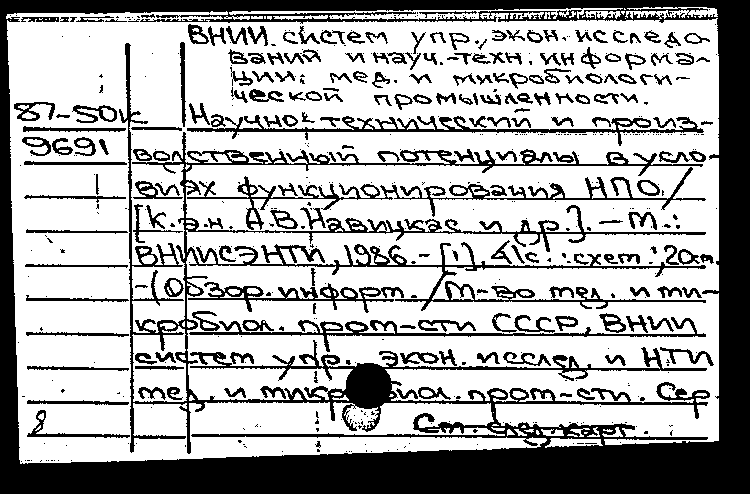 ВНИИ систем упр., экон. исследо-
ваний и науч.-техн. информа-
ции мед. и микробиологи-
ческой промышленности.
87-50к Научно-технический и произ-
9691 водственный потенциалы в усло-
виях функционирования НПО /
[К.э.н. А.В.Навицкас и др.]. — М.:
ВНИИСЭНТИ, 1986. - [1], 41с. : схем.; 20см.
-(Обзор. информ. / М-во мед. и ми-
кробиол. пром-сти СССР, ВНИИ
систем упр., экон. исслед. и НТИ
мед. и микробиол. пром-сти. Сер.
8 См. след. карт.